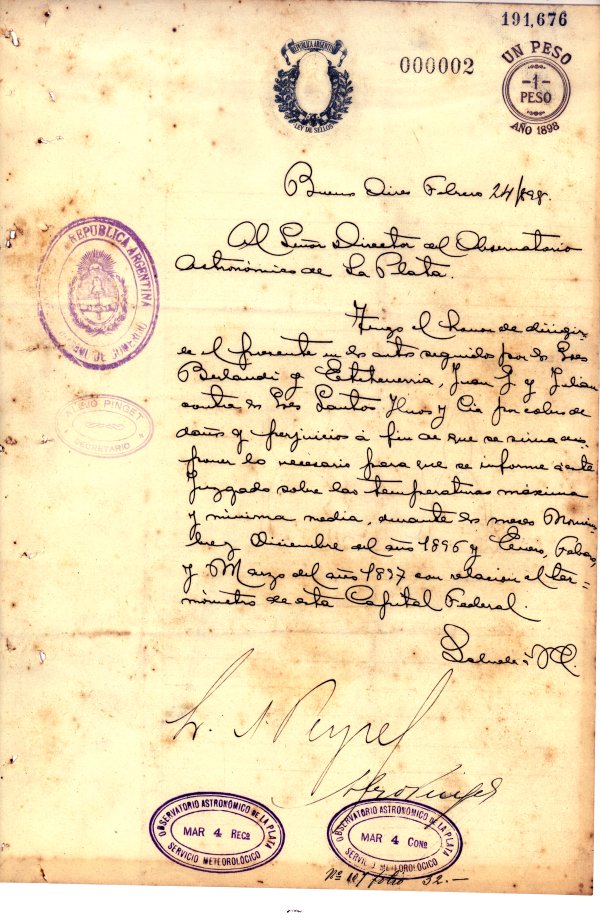 191,676
REPUBLICA ARGENTINA
LEY DE SELLOS
000002
UN PESO
-1-
PESO
AÑO 1898
Buenos Aires Febrero 24/898.
Al Señor Director del Observatorio
Astronómico de La Plata.
REPUBLICA ARGENTINA
Tengo el honor de dirigir
el presente en los autos seguidos por los Sres
y Etcheverria, Juan J y Julian
contra los Sres Santos Hnos y Cia por cobro de
daños y perjuicios á fin de que se sirva dis
poner lo necesario para que se informe á este
Juzgado sobre las temperaturas máxima
y minima media, durante los meses Noviem
bre y Diciembre del año 1896 y Enero, Febrero
y Marzo del año 1897 con relacion al ter=
mómetro de esta Capital Federal.
PINGET
SECRETARIO
OBSERVATORIO ASTRONÓMICO DE LA PLATA
MAR 4 REC^o
SERVICIO METEOROLÓGICO
OBSERVATORIO ASTRONÓMICO DE LA PLATA
MAR 4 CON^o
SERVICIO METEOROLÓGICO
folio 32.—